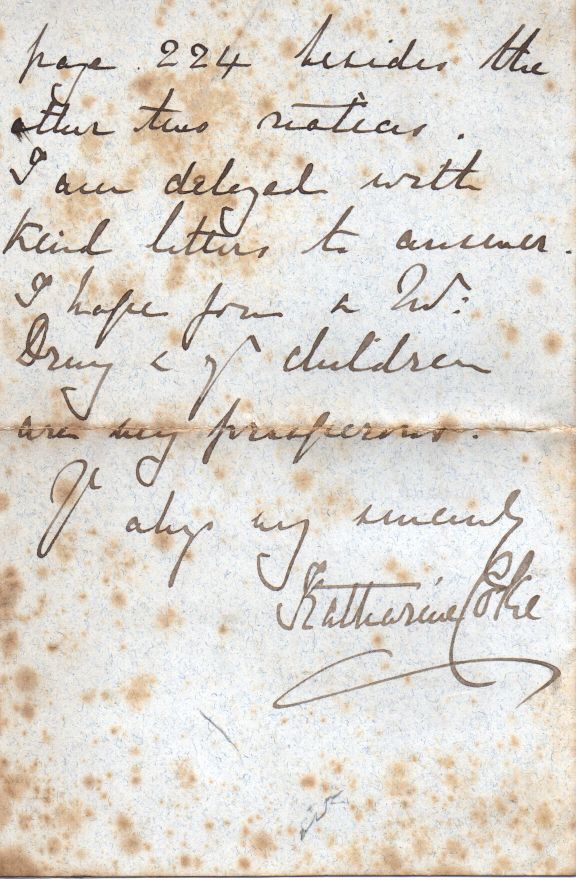 page 224 besides the
other two notices.
I am delayed with
kind letters to answer.
I hope you & Mr:
Drury & yr children
are very prosperous.
Yr always very sincerely
Katharine Coke